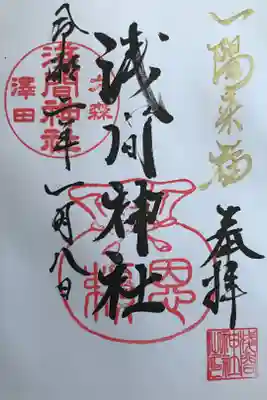 一陽来福
奉拝
浅間神社
令和六年一月八日
大森
淺間神社
澤田